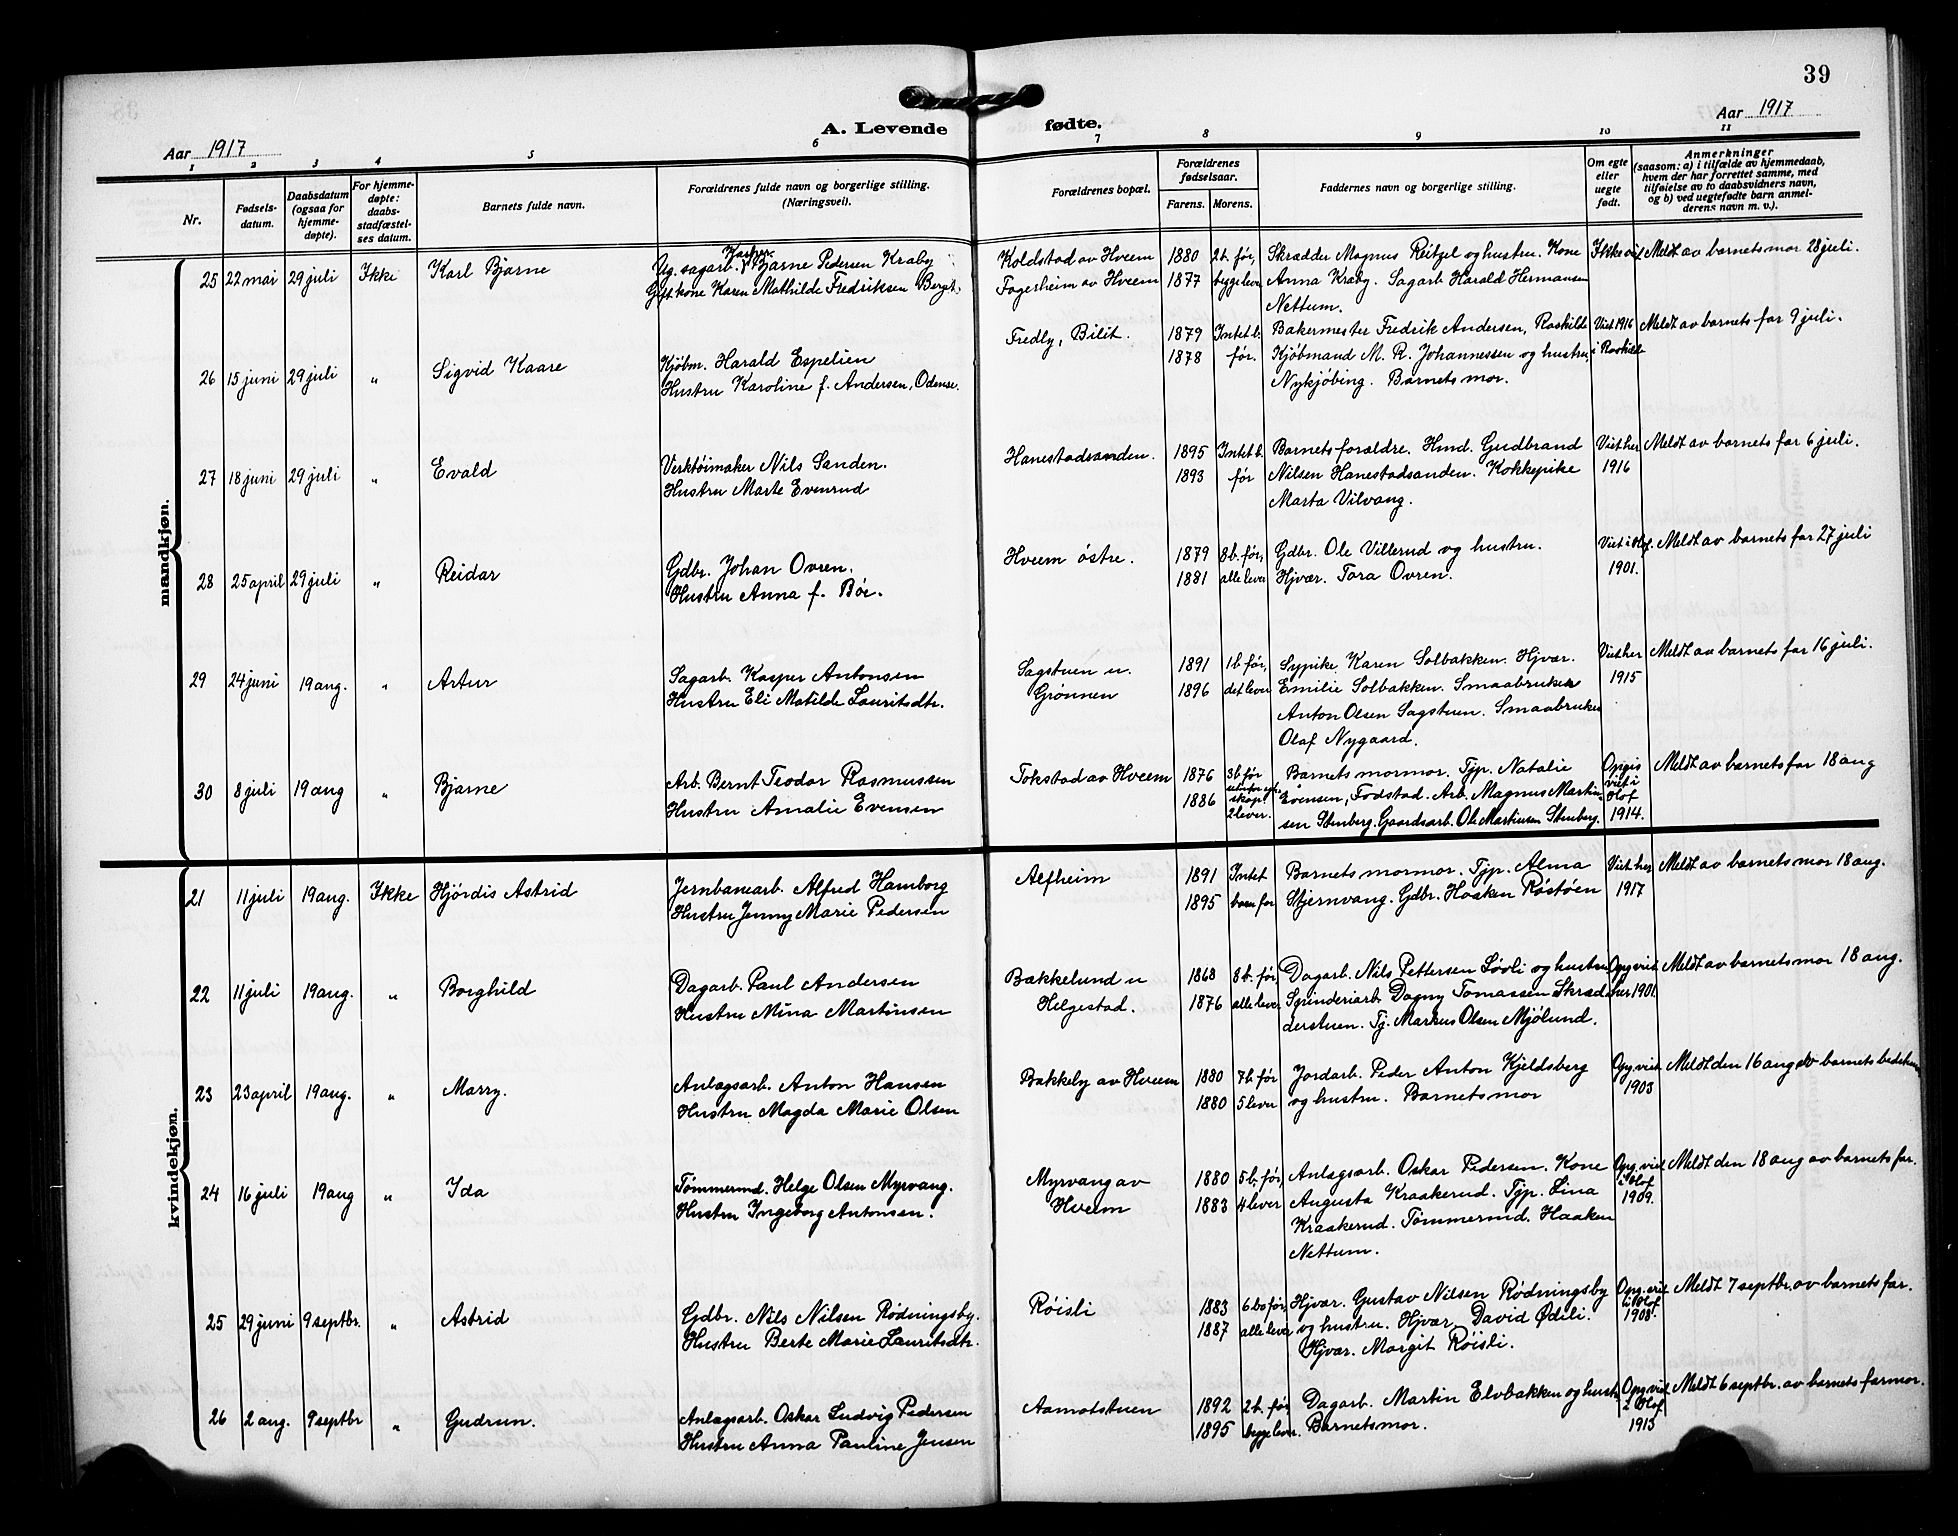 39
A. Levende fødte.
Aar 1917
Aar 1917
1 2 3 4 5 6 7 8 9 10 11
Nr.
Fødsels-
datum.
Daabsdatum
(ogsaa for
hjemme-
døpte).
For hjemme-
døpte:
daabs-
stadfæstel-
ses datum.
Barnets fulde navn.
Forældrenes fulde navn og borgerlige stilling.
(Næringsvei).
Forældrenes bopæl.
Forældrenes
fødselsaar.
Farens. Morens.
Faddernes navn og borgerlige stilling.
Om egte
eller
uegte
født.
Anmerkninger
(saasom: a) i tilfælde av hjemmedaab,
hvem der har forrettet samme, med
tilføielse av to daabsvidners navn,
og b) ved uegtefødte barn anmel-
derens navn m. v.).
mandkjøn.
25 22 mai 29 juli Ikke Karl Bjarne
Ug. sagarb. Kasper Bjarne Pedersen Kraby
Gift kone Karen Mathilde Fredriksen Berget.
Koldstad av Hveem
Fagerheim av Hveem
1880
1877
2 b. før,
begge lever
Skrædder Magnus Reitzel og hustru. Kone
Anna Kraby. Sagarb. Harald Hermansen
Nettum.
Ikke viet
Meldt av barnets mor 28 juli.
26 15 juni 29 juli " Sigvid Kaare
Kjøbm. Harald Espelien
Hustru Karoline f. Andersen, Odense.
Fredly, Bilit.
1879
1878
Intet b.
før.
Bakermester Fredrik Andersen, Roskilde
Kjøbmand M. R. Johannessen og hustru,
Nykjøbing. Barnets mor.
Viet 1916
i Roskilde
Meldt av barnets far 9 juli.
27 18 juni 29 juli " Evald
Verktøimaker Nils Sanden.
Hustru Marte Evenrud
Hanestadsanden.
1895
1893
Intet b.
før
Barnets forældre. Hmd. Gudbrand
Nilsen Hanestadsanden. Kokkepike
Marta Vilvang.
Viet her
1916
Meldt av barnets far 6 juli.
28 25 april 29 juli " Reidar
Gdbr. Johan Ovren.
Hustru Anna f. Bøe.
Hveem østre.
1879
1881
8 b. før,
alle lever
Gdbr. Ole Villerud og hustru.
Hjvær. Tora Ovren.
Viet i Hof.
1901.
Meldt av barnets far 27 juli
29 24 juni 19 aug. " Artur
Sagarb. Kasper Antonsen
Hustru Eli Matilde Lauritsdtr.
Sagstuen u.
Grønnen
1891
1896
1 b. før,
det lever
Sypike Karen Solbakken. Hjvær.
Emilie Solbakken. Smaabruker
Anton Olsen Sagstuen. Smaabruker
Olaf Nygaard.
Viet her
1915
Meldt av barnets far 16 juli.
30 8 juli 19 aug " Bjarne
Arb. Bernt Teodor Rasmussen
Hustru Amalie Evensen
Tokstad av Hveem
1876
1886
3 b. før
skap.
2 lever.
Barnets mormor. Tjp. Natalie
Evensen, Fodstad. Arb. Magnus Martin-
sen Stenberg. Gaardsarb. Ole Martinsen Stenberg.
Opgis
viet i
V Hof
1914.
Meldt av barnets far 18 aug
kvindekjøn.
21 11 juli 19 aug. Ikke Hjørdis Astrid
Jernbanearb. Alfred Hamborg
Hustru Jenny Marie Pedersen
Alfheim
1891
1895
Intet
barn før
Barnets mormor. Tjp. Alma
Stjernvang. Gdbr. Haaken Røstøen
Viet her
1917
Meldt av barnets mor 18 aug.
22 11 juli 19 aug. " Borghild
Dagarb. Paul Andersen
Hustru Mina Martinsen
Bakkelund u
Helgestad.
1868
1876
8 b. før,
alle lever
Dagarb. Nils Pettersen Løvli og hustru
Spinderiarb. Dagny Tomassen Skræd-
derstuen. Tj. Markus Olsen Mjølund.
Opg. viet
her 1901.
Meldt av barnets mor 18 aug.
23 23 april 19 aug. " Marry.
Anlægsarb. Anton Hansen
Hustru Magda Marie Olsen
Bakkely av Hveem
1880
1880
7 b. før
5 lever
Jordarb. Peder Anton Kjeldsberg
og hustru. Barnets mor
Opg. viet
1903
Meldt den 16 aug av barnets
24 16 juli 19 aug " Ida
Tømmermd. Helge Olsen Myrvang.
Hustru Ingeborg Antonsen.
Myrvang av
Hveem
1880
1883
5 b. før,
4 lever
Anlægsarb. Oskar Pedersen. Kone
Augusta Kraakerud. Tjp. Lina
Kraakerud. Tømmermd. Haaken
Nettum.
Opg. viet
i V Hof
1909.
Meldt den 18 aug av barnets far.
25 29 juni 9 septbr. " Astrid
Gdbr. Nils Nilsen Rødningsby.
Hustru Berte Marie Lauritsdtr.
Røisli
1883
1887
6 b. før,
alle lever
Hjvær. Gustav Nilsen Rødningsby
og hustru. Hjvær. David Ødeli.
Hjvær. Margit Røisli.
Opg. viet
i V Hof
1908.
Meldt 7 septbr. av barnets far.
26 2 aug. 9 septbr " Gudrun.
Anlægsarb. Oskar Ludvig Pedersen
Hustru Anna Pauline Jensen
Aamotstuen
1892
1895
2 b. før
begge lever.
Dagarb. Martin Elvbakken og hustru
Barnets mor.
Opg. viet
i V Hof
1913
Meldt 6 septbr. av barnets farmor.